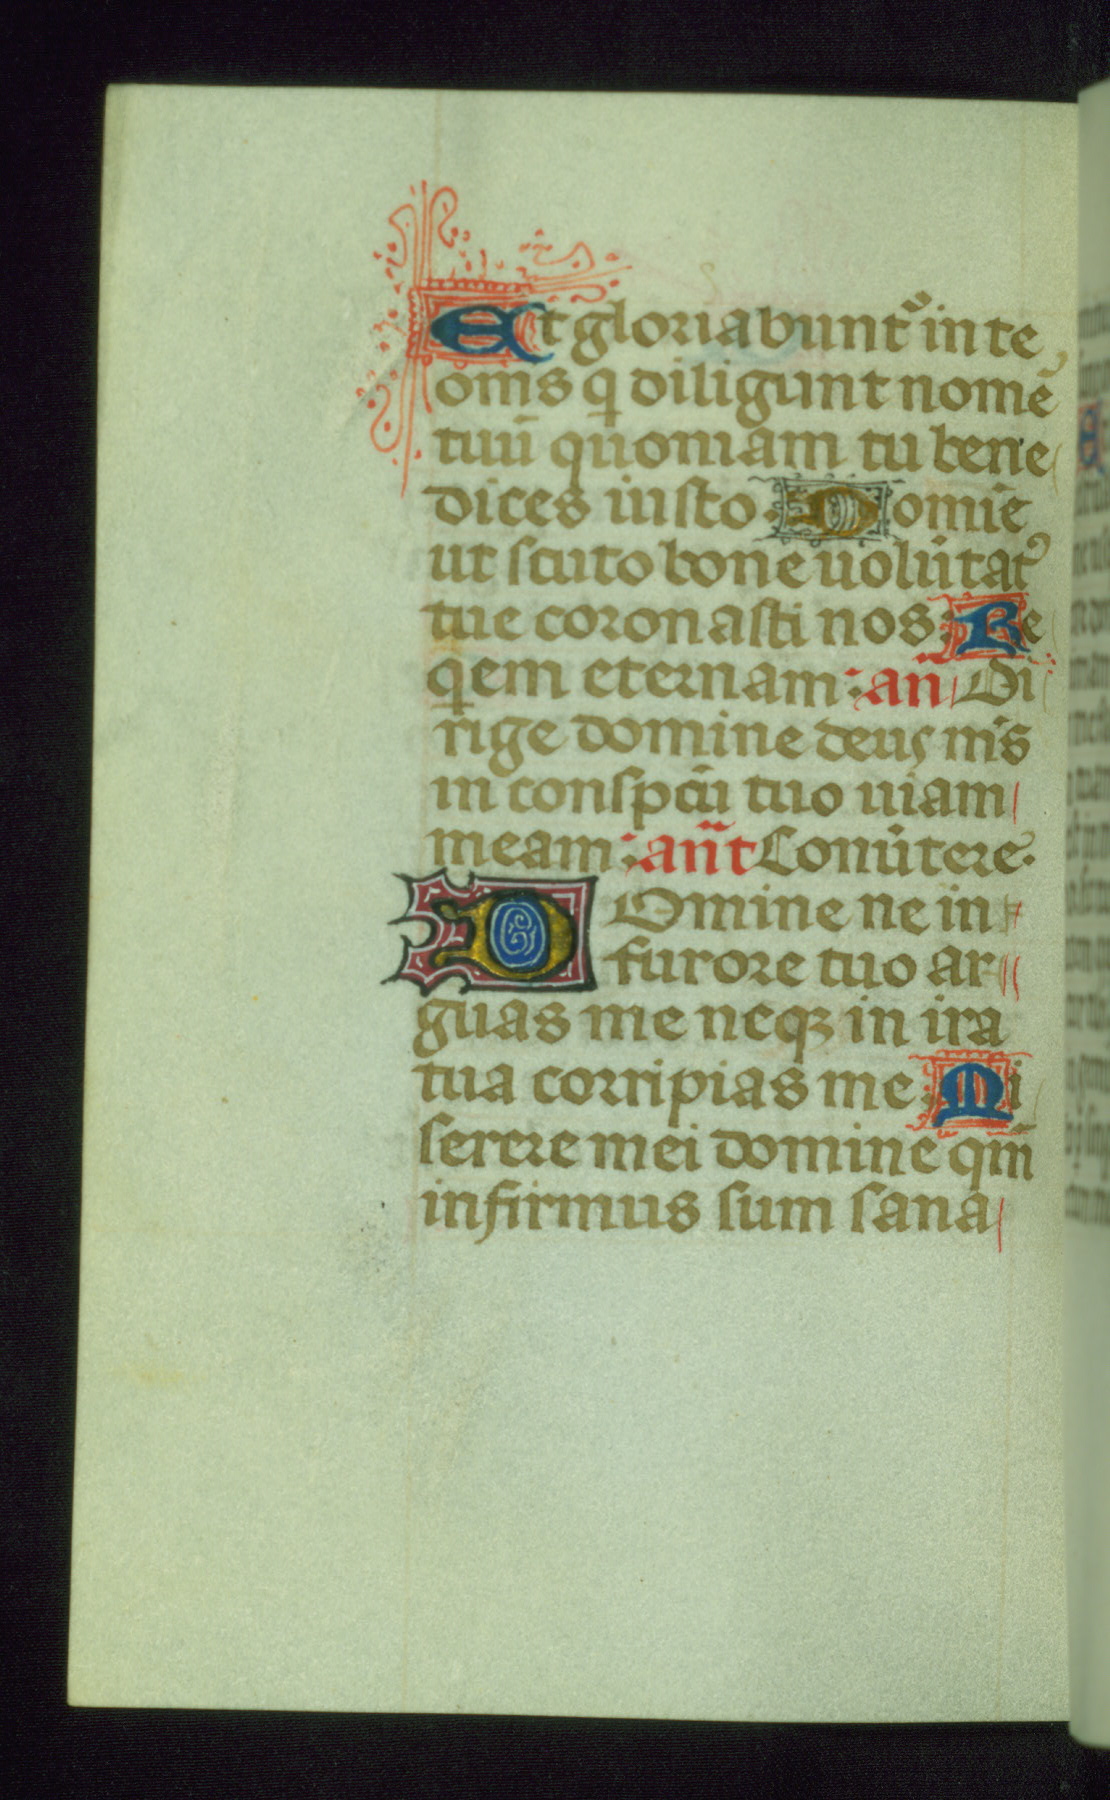 Et gloriabunt᷑ in te
oms̄ q̄ diligunt nomē
tuū quoniam tu bene
dices iusto. Domīe
ut scuto bone uolūtat᷒
tue coronasti nos. Re
qēm eternam. an̄ Di
rige domine deus m̄s
in conspcū tuo uiam
meam. an̄t Conūtere.
DOmine ne in
furore tuo ar
guas me neqꝫ in ira
tua corripias me. Mi
serere mei domine qm̄
infirmus sum sana